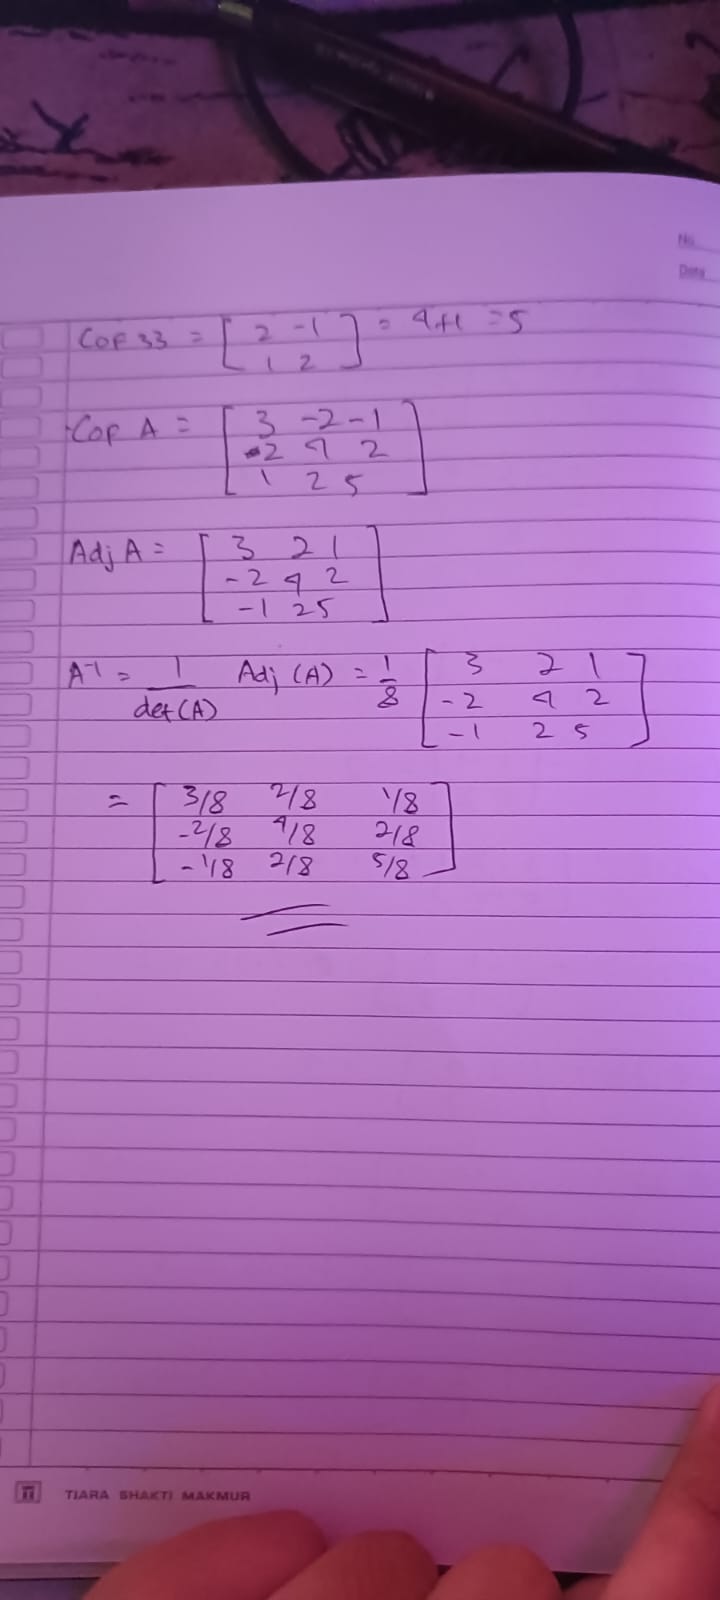 No.
Date
Cof 33 = [ 2 -1 ] = 4+1 = 5
1 2
Cof A = [ 3 -2 -1 ]
2 4 2
1 2 5
Adj A = [ 3 2 1 ]
-2 4 2
-1 2 5
A⁻¹ = 1 Adj (A) = 1 [ 3 2 1 ]
det (A) 8 -2 4 2
-1 2 5
= [ 3/8 2/8 1/8 ]
-2/8 4/8 2/8
-1/8 2/8 5/8
TIARA SHAKTI MAKMUR